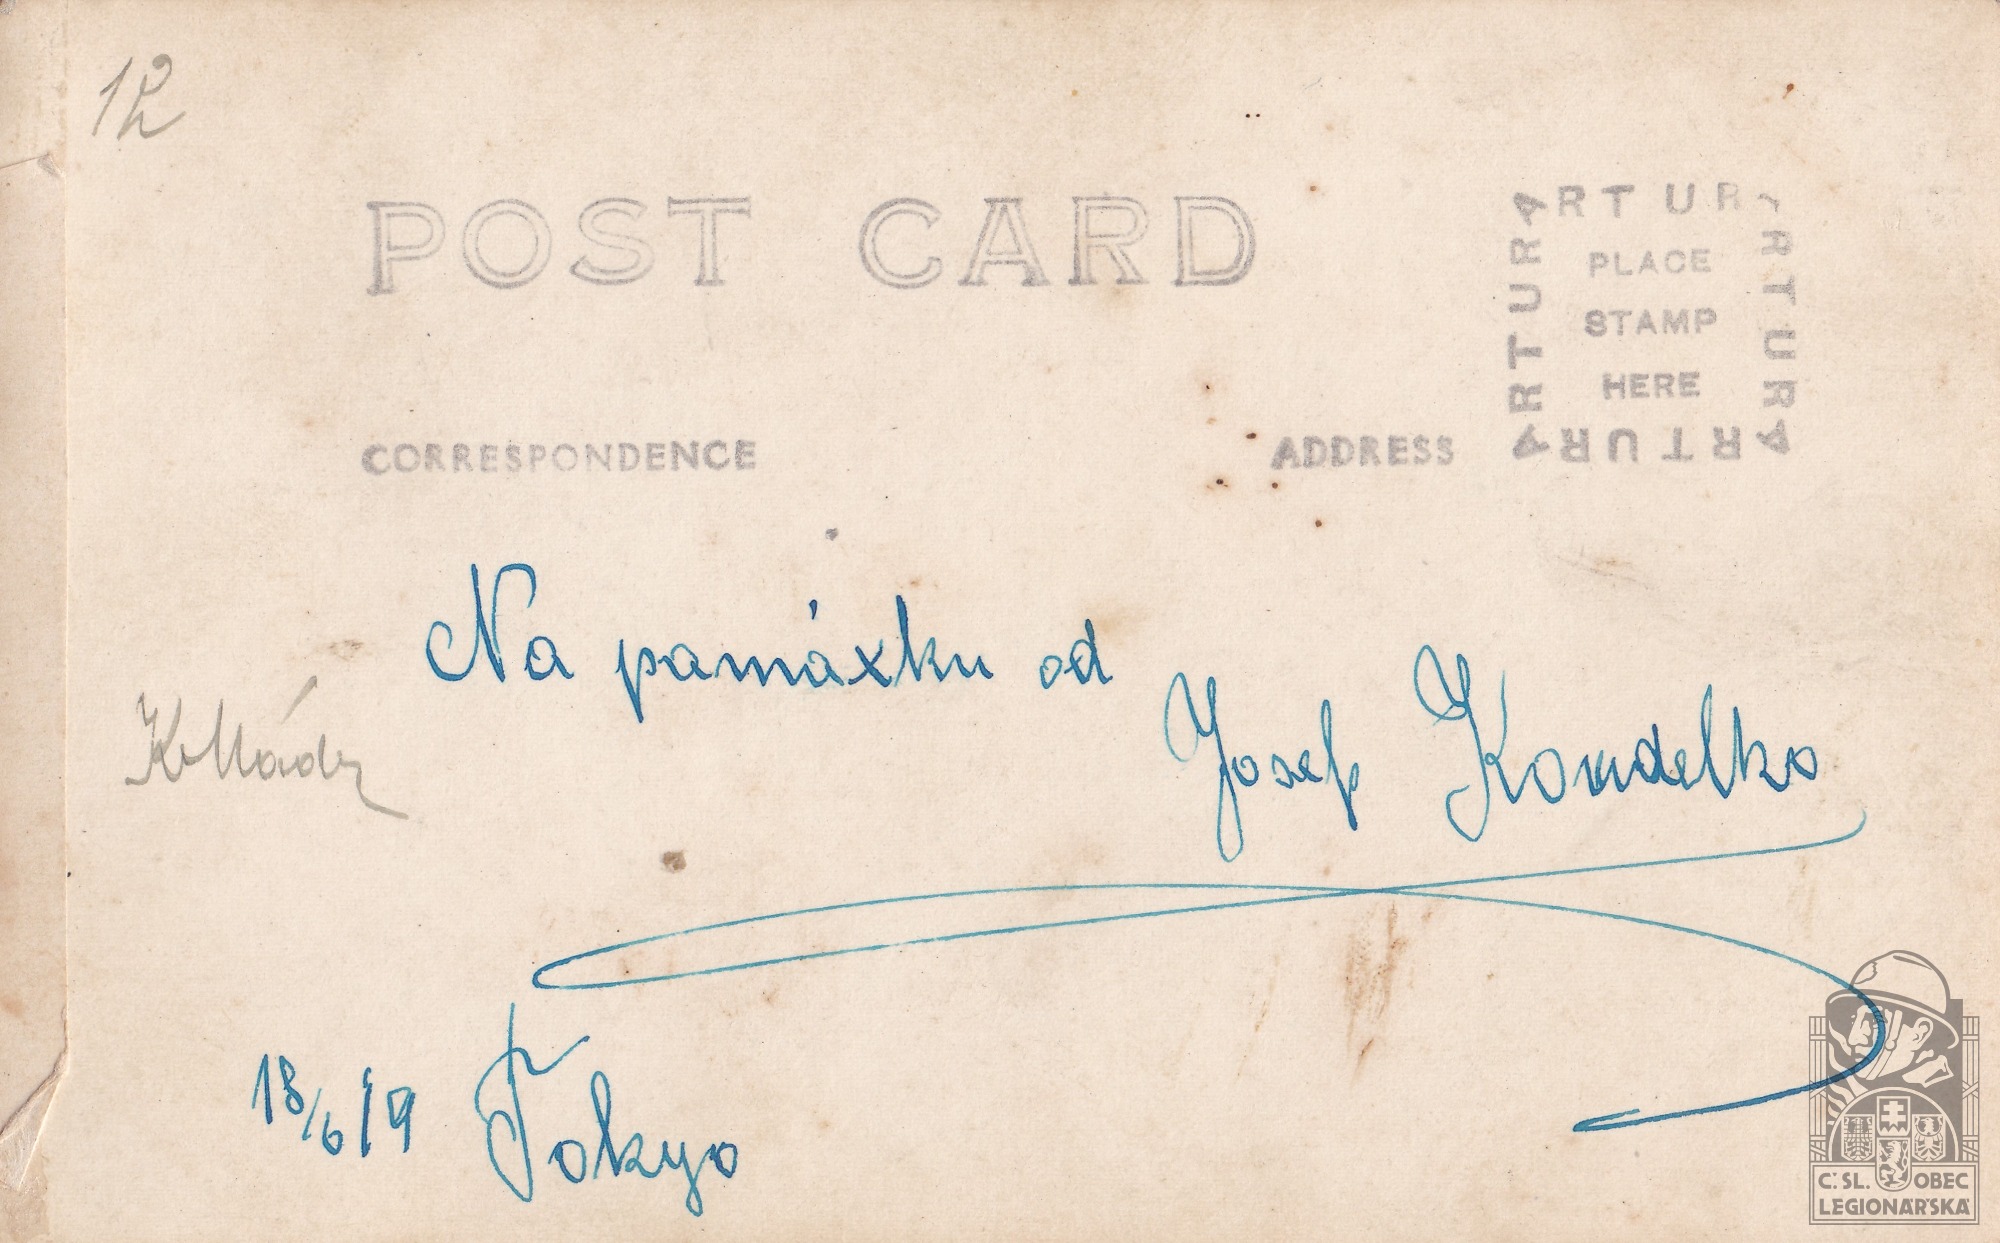 12
POST CARD
ARTURA
ARTURA
ARTURA
ARTURA
PLACE
STAMP
HERE
CORRESPONDENCE
ADDRESS
Na památku od
Josef Koudelka
18/6 19 Tokyo
Č. SL. OBEC
LEGIONÁŘSKÁ